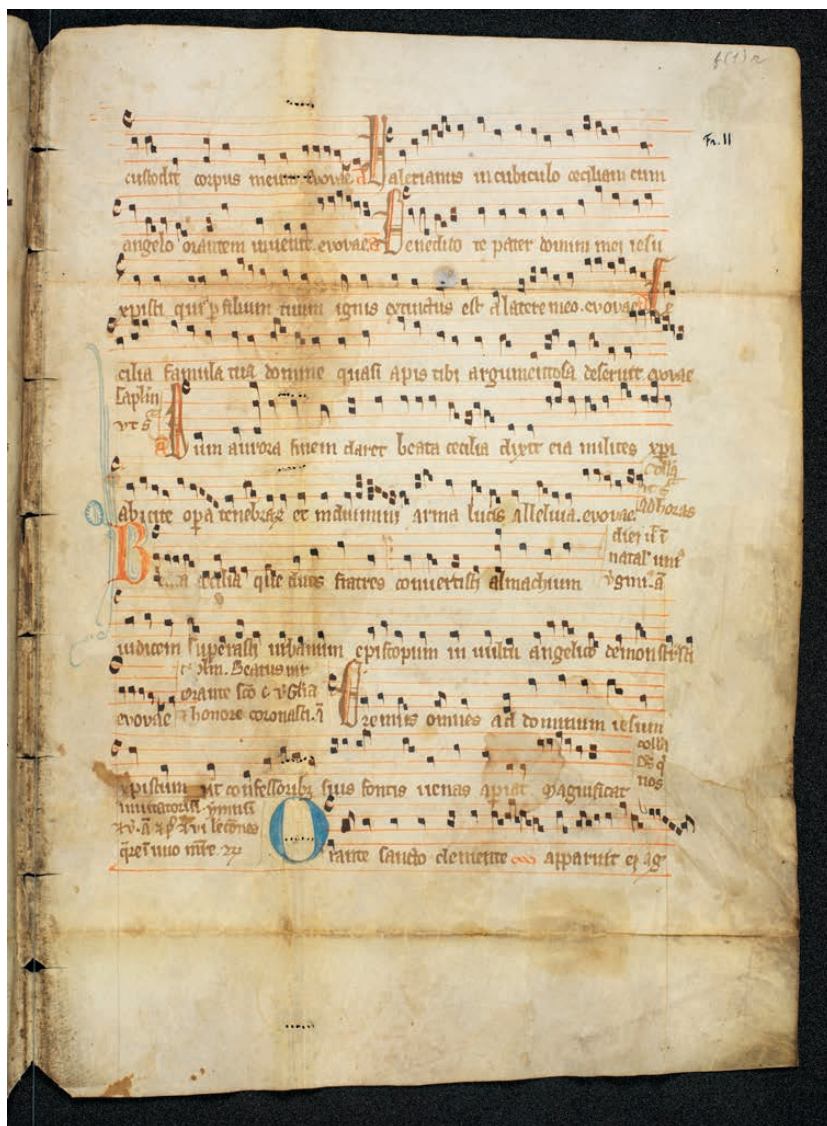 f(1)r
Fr. 11
custodit corpus meum. evovae a Valerianus in cubiculo ceciliam cum
angelo orantem invenit. evovae. a Benedico te pater domini mei iesu
xpisti qui p filium tuum ignis extinctus est a latere meo. evovae
cilia famula tua domine quasi apis tibi argumentosa deservit evovae
Caplm
vt s
a Dum aurora finem daret beata cecilia dixit eia milites xpi
abicite opa tenebrar et induimini arma lucis alleluia. evovae.
ad horas
Beata cecilia que duos fratres convertisti almachium
natal uni
vgnis. a
iudicem superasti urbanum episcopum in vultu angelico demonstrasti
evovae
Beatus vir
Orante sco c v Gla
honore coronasti. a
Oremus omnes ad dominum iesum
xpistum ut confessoribz suis fontis venas apiat Magnificat
nos
invitatorium ymnus
qre in uno mre. 
Orante sancto clemente apparuit ei ag